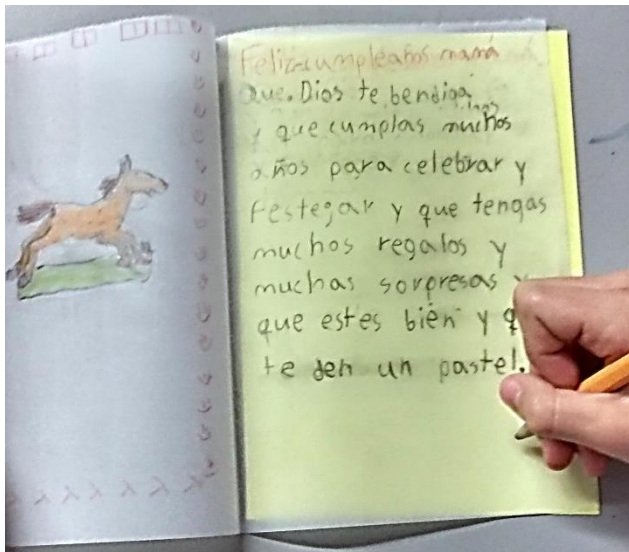 Feliz cumpleaños mamá
Que. Dios te bendiga
y que cumplas muchos
años para celebrar y
festejar y que tengas
muchos regalos y
muchas sorpresas y
que estes bien y q
te den un pastel.